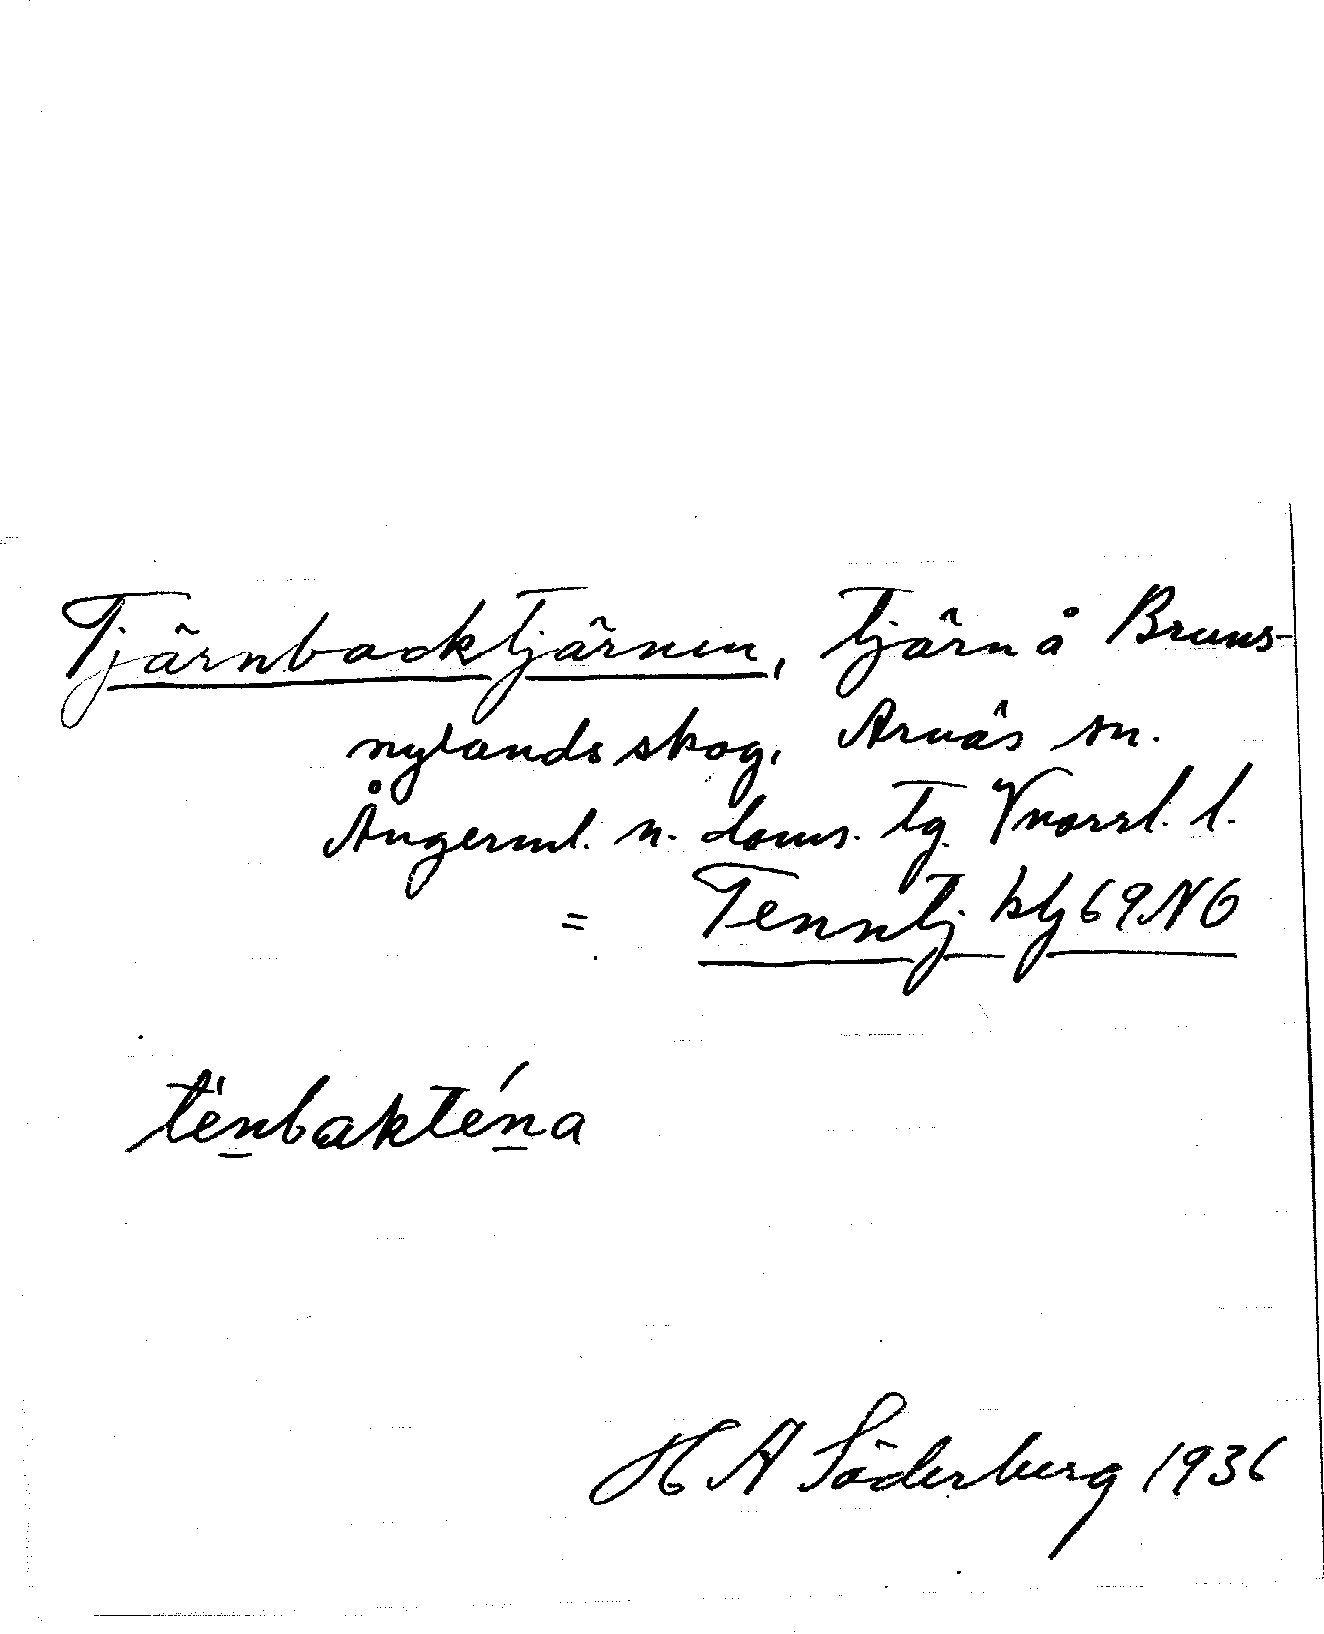 Tjärnbacktjärnen, tjärn å Bruns-
nylands skog, Arnäs sn.
Ångerml. n. doms. tg. Vnorrl. l.
= Tenntj kbl 69 NO
tènbakténa
H A Söderberg 1936